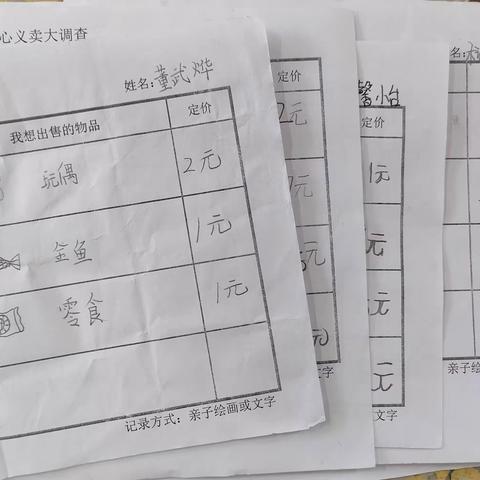 心义卖大调查
姓名:董武烨
我想出售的物品 定价
玩偶 2元
金鱼 1元
零食 1元
记录方式:亲子绘画或文字
定价
2元
元
元
元
馨怡
定价
1元
元
元
元
亲子绘画或文字
姓名: